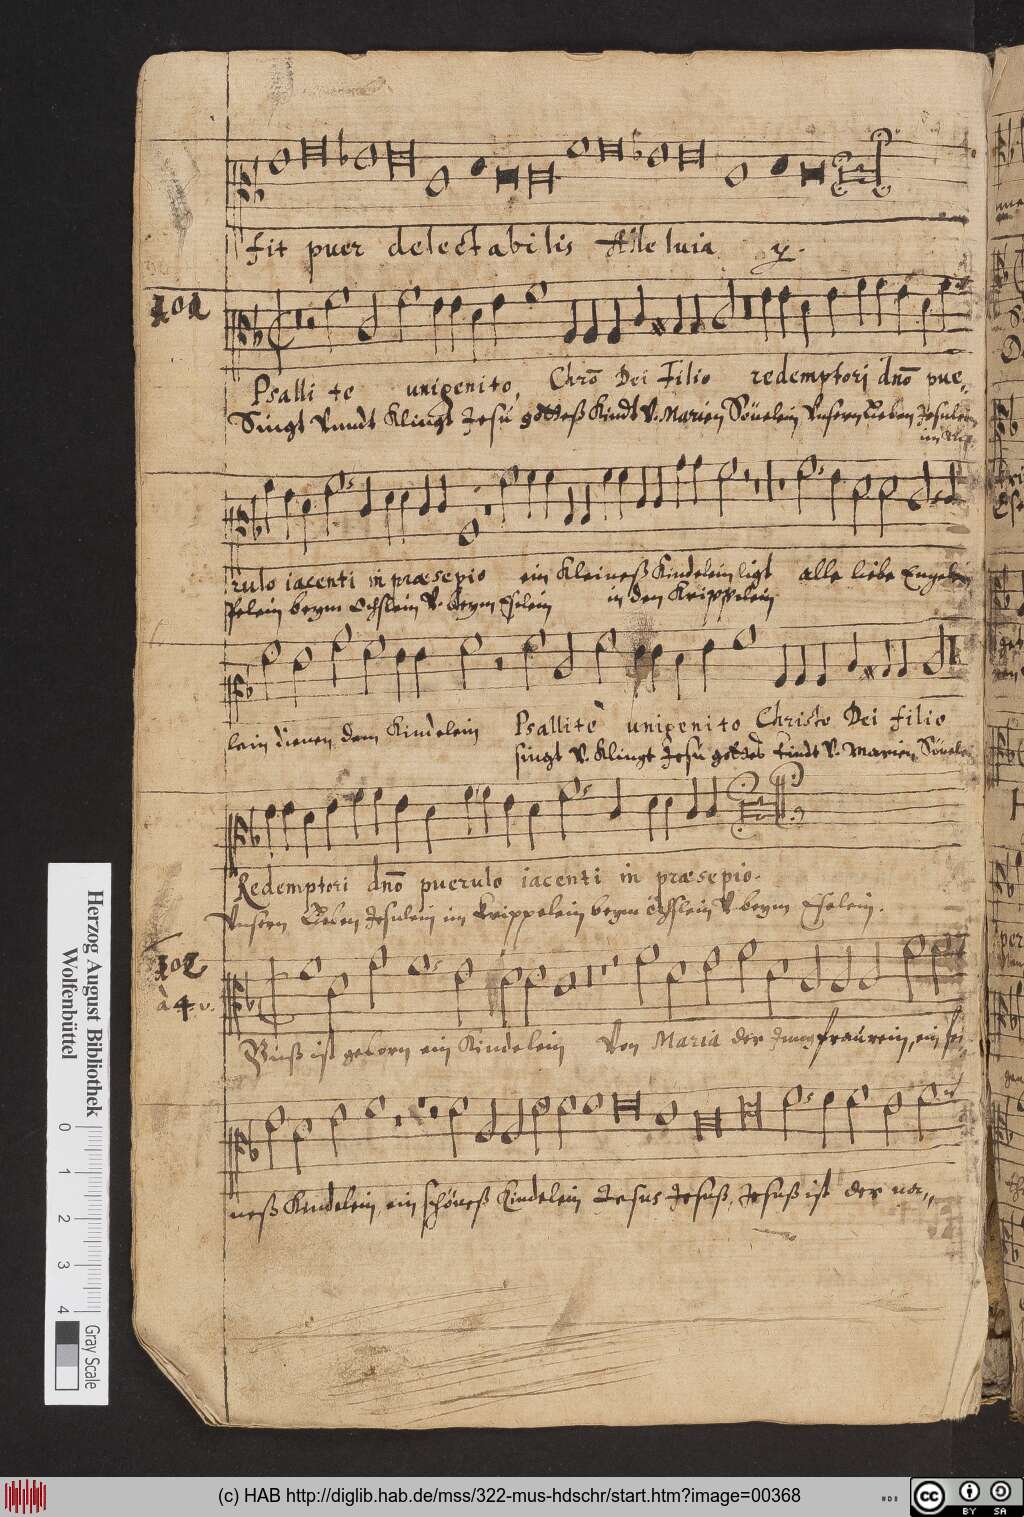 fit puer delectabilis Alleluia ÿ.
101
Psallite unigenito, Chrō Dei Filio redemptori dnō pue,,
Singt Vnndt Klingt Jesu gotteß Kindt V. Marien Söuelein Vnsern Lieben Jesulein
im Krip,,
rulo iacenti in præsepio ein Kleineß Kindelein ligt alle liebe Engelein
pelein beym Ochslein V. beym Eselein in dem Krippelein
lein dienen dem Kindelein Psallite unigenito Christo Dei filio
singt V. Klingt Jesu gottes Kindt V. Marien Söuelein
Redemptori dnō puerulo iacenti in præsepio.
Vnsern Lieben Jesulein im Krippelein beym öchslein V. beym Eselein.
102
à 4. v.
Vnß ist geborn ein Kindelein Von Maria der Jungfraw rein, ein fei,,
neß Kindelein, ein schöneß Kindelein Jesus Jesuß, Jesuß ist der na,,
Herzog August Bibliothek
Wolfenbüttel
0 1 2 3 4
Gray Scale
(c) HAB http://diglib.hab.de/mss/322-mus-hdschr/start.htm?image=00368
cc BY SA